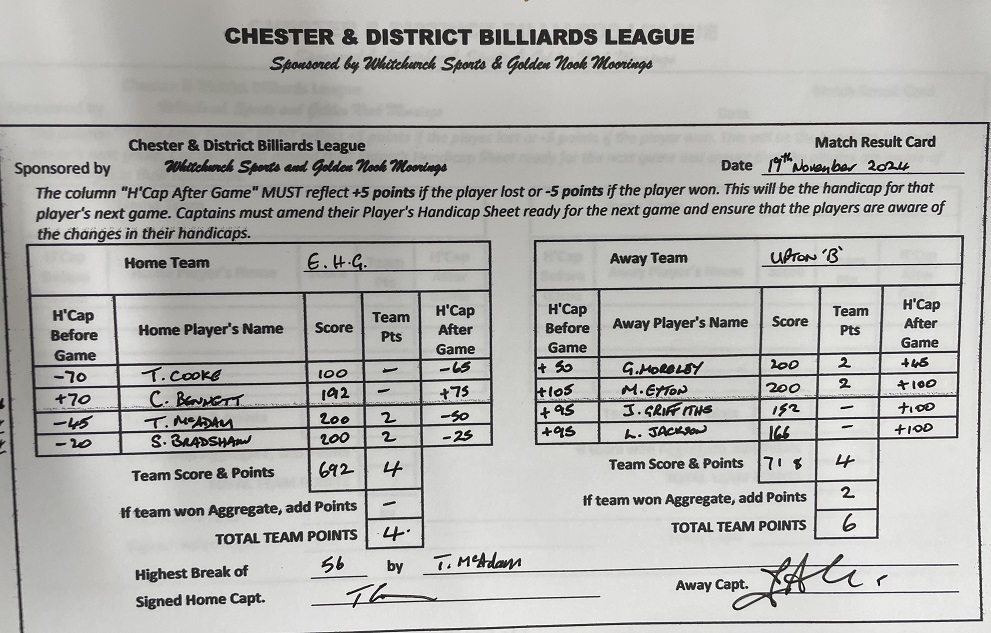 CHESTER & DISTRICT BILLIARDS LEAGUE
Sponsored by Whitchurch Sports & Golden Nook Moorings
Chester & District Billiards League Match Result Card
Sponsored by Whitchurch Sports and Golden Nook Moorings Date 19th November 2024
The column "H'Cap After Game" MUST reflect +5 points if the player lost or -5 points if the player won. This will be the handicap for that
player's next game. Captains must amend their Player's Handicap Sheet ready for the next game and ensure that the players are aware of
the changes in their handicaps.
Home Team E.H.G.
H'Cap Before Game Home Player's Name Score Team Pts H'Cap After Game
-70 T. COOKE 100 - -65
+70 C. BENNETT 192 - +75
-45 T. McADAM 200 2 -50
-20 S. BRADSHAW 200 2 -25
Team Score & Points 692 4
If team won Aggregate, add Points -
TOTAL TEAM POINTS 4
Away Team UPTON 'B'
H'Cap Before Game Away Player's Name Score Team Pts H'Cap After Game
+50 G. 200 2 +45
+105 M. EYTON 200 2 +100
+95 J. GRIFFITHS 152 - +100
+95 L. JACKSON 166 - +100
Team Score & Points 718 4
If team won Aggregate, add Points 2
TOTAL TEAM POINTS 6
Highest Break of 56 by T. McAdam
Signed Home Capt.
Away Capt.